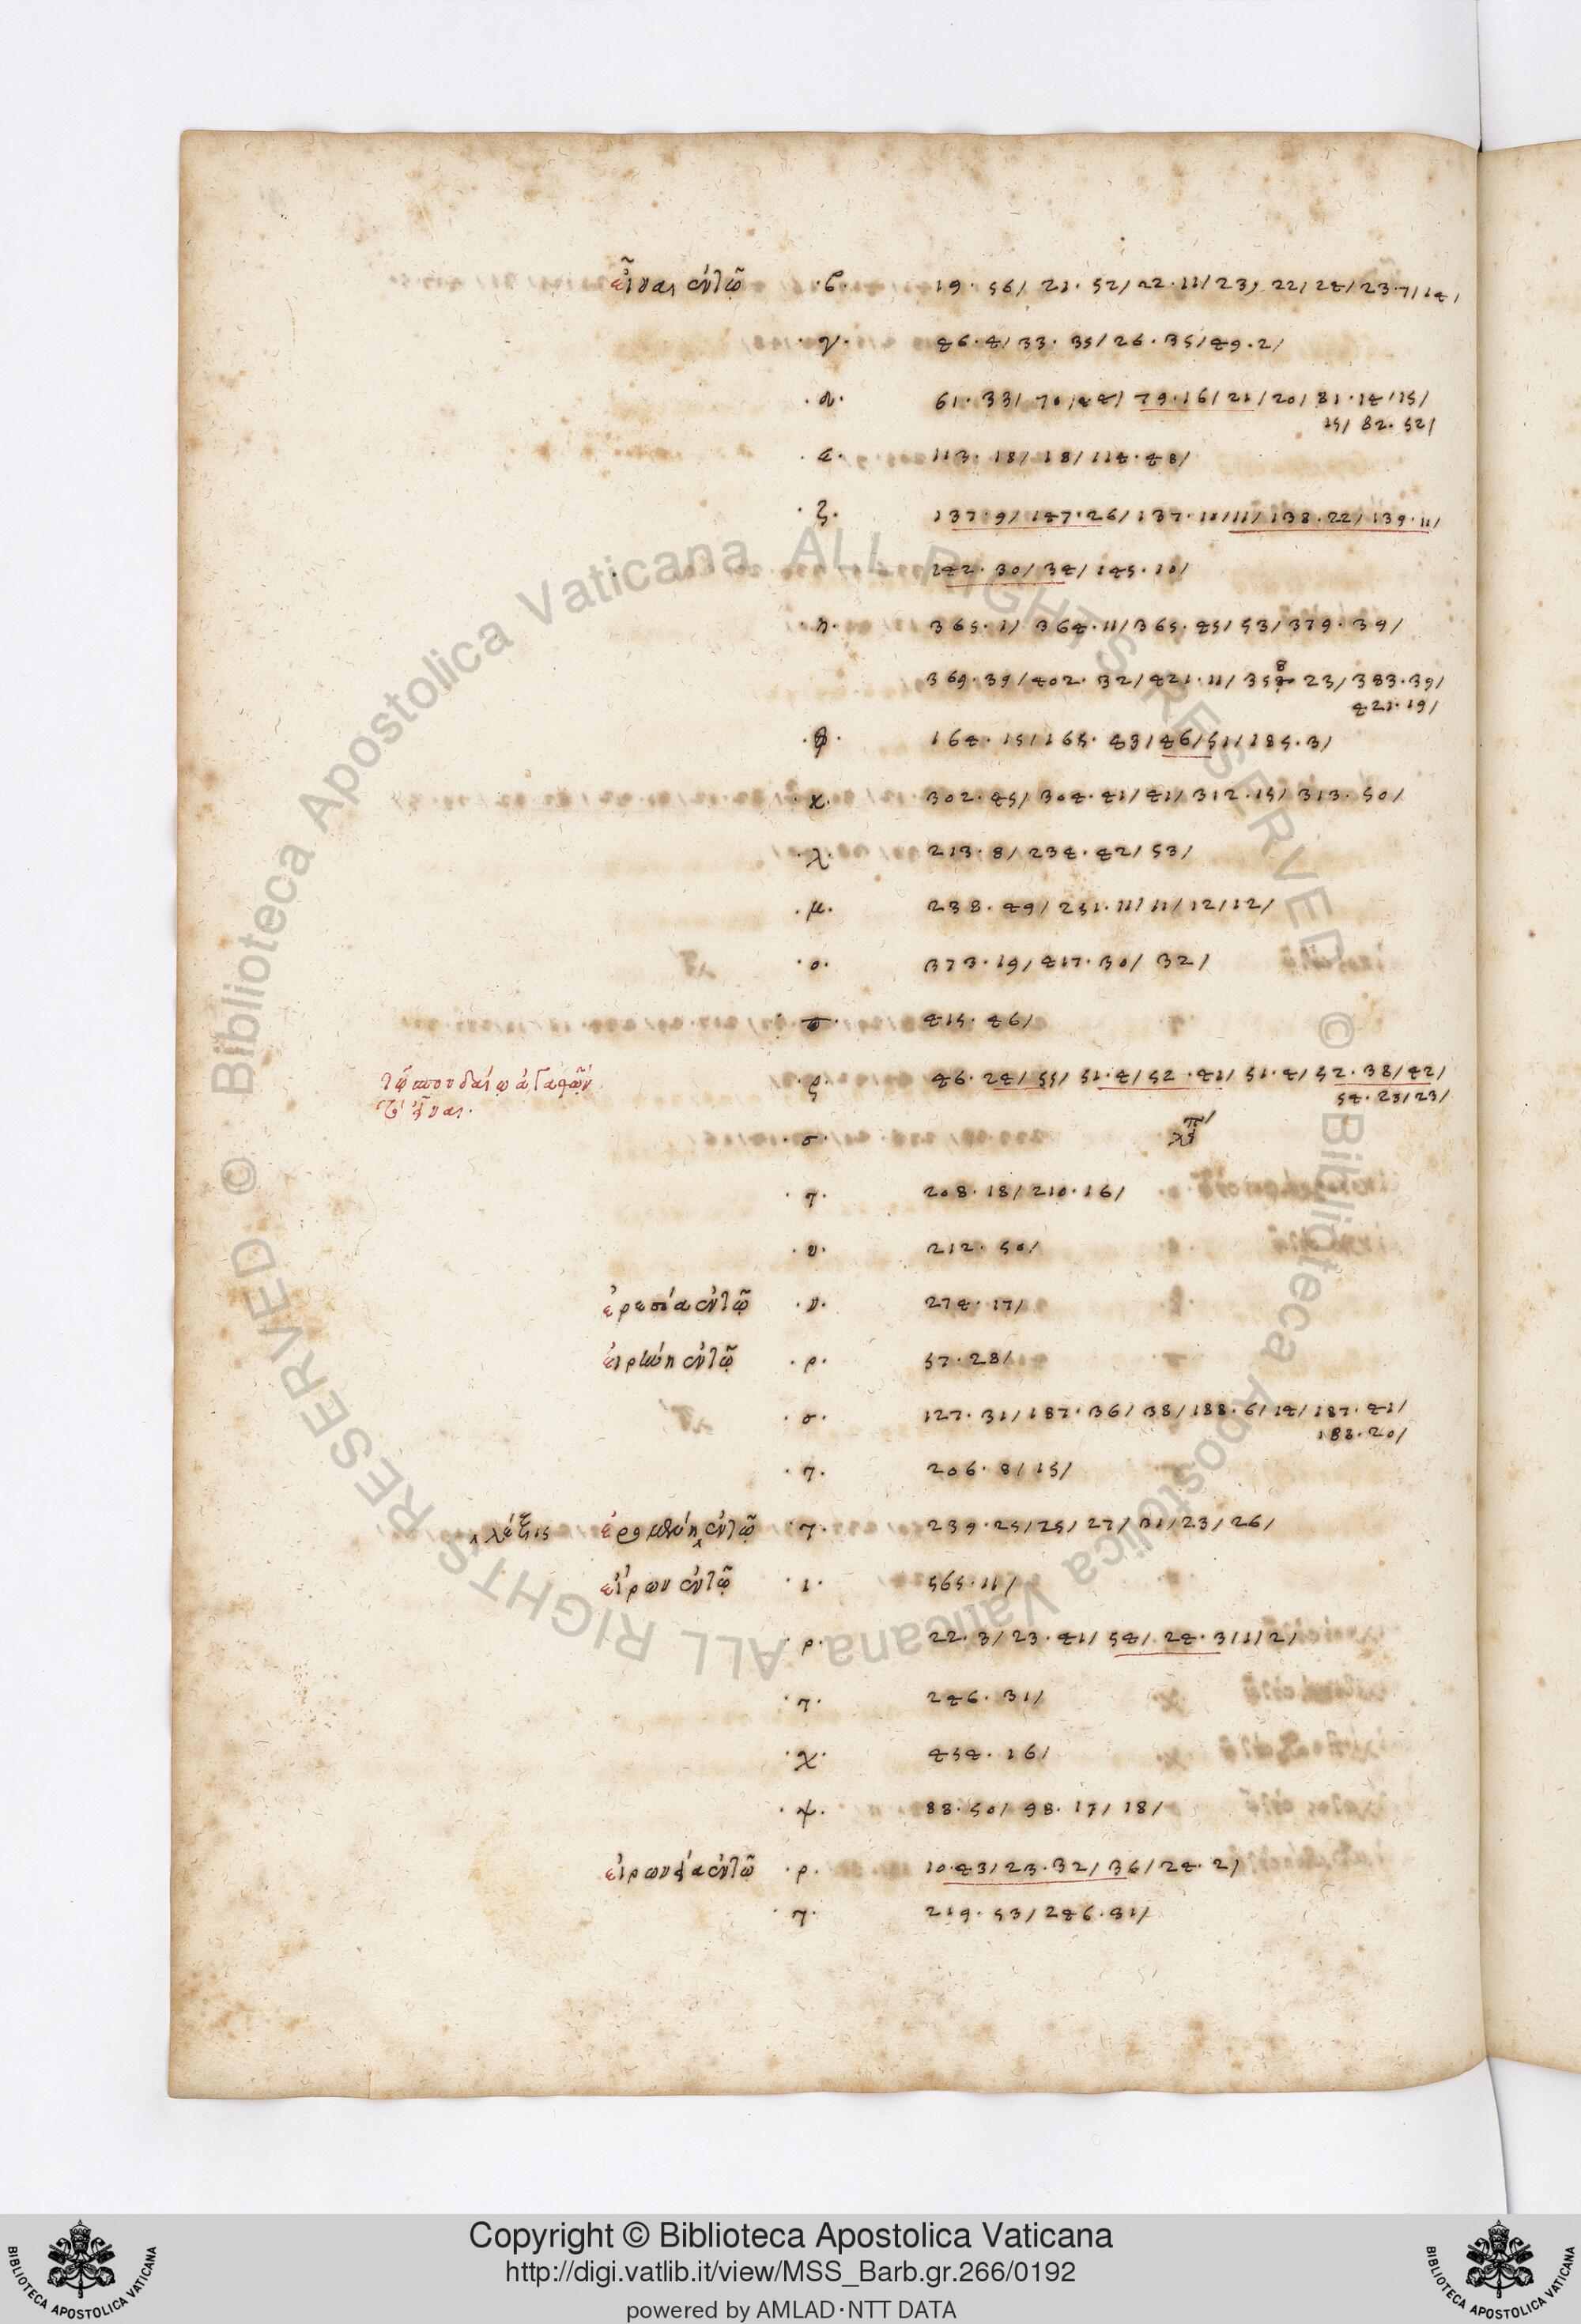 εἶναι ἐν τῷ ·β· 19 · 56/ 21 · 52/ 22 · 11/ 23/ 22/ 24/ 23 · 7/ 14/
·γ· 46 · 4/ 33 · 35/ 26 · 35/ 49 · 2/
·δ· 61 · 33/ 70/44/ 79 · 16/ 21/ 20/ 81 · 14/15/
15/ 82 · 52/
·ε· 113 · 18/ 18/ 114 · 48/
·ζ· 137 · 9/ 147 · 26/ 137 · 10/11/ 138 · 22/ 139 · 11/
142 · 30/ 34/ 145 · 10/
·η· 365 · 1/ 364 · 11/ 365 · 45/ 53/ 379 · 39/
369 · 39/ 402 · 32/ 421 · 11/ 358 23/ 383 · 39/
421 · 19/
164 · 15/ 165 · 43/ 46/ 51/ 185 · 3/
·κ· 302 · 45/ 304 · 41/ 41/ 312 · 15/ 313 · 50/
·λ· 213 · 8/ 234 · 42/ 53/
·μ· 238 · 49/ 251 · 11/ 11/ 12/12/
·ο· 373 · 19/ 417 · 30/ 32/
415 · 46/
τῷ σπουδαίῳ ἀγαθῷ ·ρ· 46 · 24/ 55/ 51 · 4/ 52 · 41/ 51 · 4/ 52 · 38/ 42/
εἶναι · 54 · 23/ 23/
·σ·
·τ· 208 · 18/ 210 · 16/
·υ· 212 · 50/
ἐρεσία ἐν τῷ ·ν· 274 · 17/
εἰρήνη ἐν τῷ ·ρ· 57 · 28/
·σ· 127 · 31/ 187 · 36/ 38/ 188 · 6/ 14/ 187 · 41/
188 · 20/
·τ· 206 · 8/ 15/
λέξις ἐν τῷ ·τ· 239 · 25/ 25/ 27/ 31/ 23/ 26/
εἴρων ἐν τῷ ·ι· 565 · 11/
·ρ· 22 · 3/ 23 · 41/ 54/ 24 · 3/1/2/
·τ· 246 · 31/
·χ· 454 · 16/
·ψ· 88 · 50/ 98 · 17/ 18/
εἰρωνεία ἐν τῷ ·ρ· 10 · 43/ 23 · 32/ 36/ 24 · 2/
·τ· 219 · 53/ 246 · 31/
© Biblioteca Apostolica Vaticana ALL RIGHTS RESERVED © Biblioteca Apostolica Vaticana ALL RIGHTS RESERVED
Copyright © Biblioteca Apostolica Vaticana
http://digi.vatlib.it/view/MSS_Barb.gr.266/0192
powered by AMLAD·NTT DATA
BIBLIOTECA APOSTOLICA VATICANA
BIBLIOTECA APOSTOLICA VATICANA